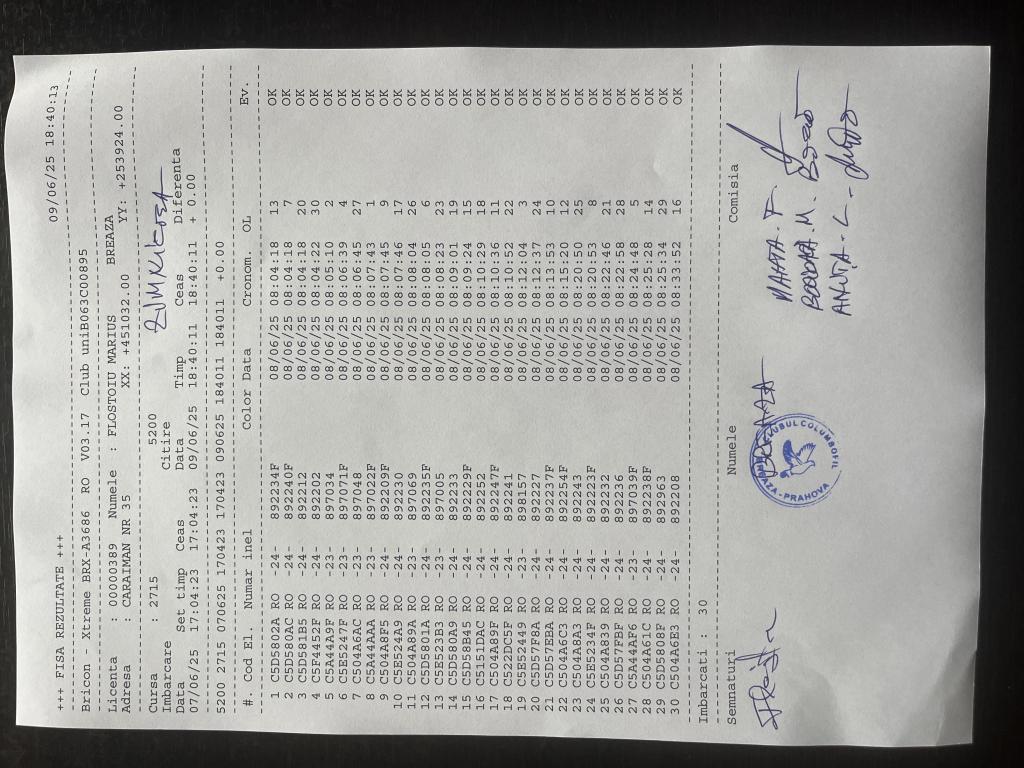 +++ FISA REZULTATE +++ 09/06/25 18:40:13
Bricon - Xtreme BRX-A3686 RO V03.17 Club uniB063C00895
Licenta : 00000389 Numele : FLOSTOIU MARIUS BREAZA
Adresa : CARAIMAN NR 35 XX: +451032.00 YY: +253924.00
Cursa : 2715 5200
Imbarcare Citire
Data Set timp Ceas Data Timp Ceas Diferenta
07/06/25 17:04:23 17:04:23 09/06/25 18:40:11 18:40:11 + 0.00
5200 2715 070625 170423 170423 090625 184011 184011 +0.00
#. Cod El. Numar inel Color Data Cronom. OL Ev.
1 C5D5802A RO -24- 892234F 08/06/25 08:04:18 13 OK
2 C5D580AC RO -24- 892240F 08/06/25 08:04:18 7 OK
3 C5D581B5 RO -24- 892212 08/06/25 08:04:18 20 OK
4 C5F4452F RO -24- 892202 08/06/25 08:04:22 30 OK
5 C5A44A9F RO -23- 897034 08/06/25 08:05:10 2 OK
6 C5E5247F RO -23- 897071F 08/06/25 08:06:39 4 OK
7 C504A6AC RO -24- 897048 08/06/25 08:06:45 27 OK
8 C5A44AAA RO -23- 897022F 08/06/25 08:07:43 1 OK
9 C504A8F5 RO -24- 892209F 08/06/25 08:07:45 9 OK
10 C5E524A9 RO -24- 892230 08/06/25 08:07:46 17 OK
11 C504A89A RO -23- 897069 08/06/25 08:08:04 26 OK
12 C5D5801A RO -24- 892235F 08/06/25 08:08:05 6 OK
13 C5E523B3 RO -23- 897005 08/06/25 08:08:23 23 OK
14 C5D580A9 RO -24- 892233 08/06/25 08:09:01 19 OK
15 C5D58B45 RO -24- 892229F 08/06/25 08:09:24 15 OK
16 C5151DAC RO -24- 892252 08/06/25 08:10:29 18 OK
17 C504A89F RO -24- 892247F 08/06/25 08:10:36 11 OK
18 C522DC5F RO -24- 892241 08/06/25 08:10:52 22 OK
19 C5E52449 RO -23- 898157 08/06/25 08:12:04 3 OK
20 C5D57F8A RO -24- 892227 08/06/25 08:12:37 24 OK
21 C5D57EBA RO -24- 892237F 08/06/25 08:13:55 10 OK
22 C504A6C3 RO -24- 892254F 08/06/25 08:15:20 12 OK
23 C504A8A3 RO -24- 892243 08/06/25 08:20:50 25 OK
24 C5E5234F RO -24- 892223F 08/06/25 08:20:53 8 OK
25 C504A839 RO -24- 892232 08/06/25 08:22:46 21 OK
26 C5D57FBF RO -24- 892236 08/06/25 08:22:58 28 OK
27 C5A44AF6 RO -23- 897039F 08/06/25 08:24:48 5 OK
28 C504A61C RO -24- 892238F 08/06/25 08:25:28 14 OK
29 C5D5808F RO -24- 892963 08/06/25 08:25:34 29 OK
30 C504A6E3 RO -24- 892208 08/06/25 08:33:52 16 OK
Imbarcati : 30
Semnaturi Numele Comisia
BREAZA